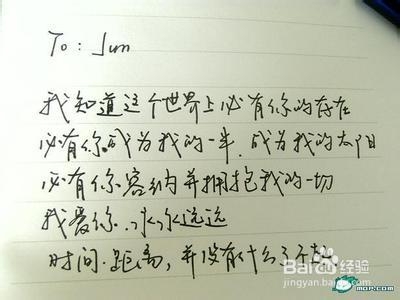 To: Jun
我知道这个世界上必有你的存在
必有你成为我的一半.成为我的太阳
必有你容纳并拥抱我的一切
我爱你.永永远远
时间.距离,并没有什么了不起
Baidu 百度经验
jingyan.baidu.com
mop.com